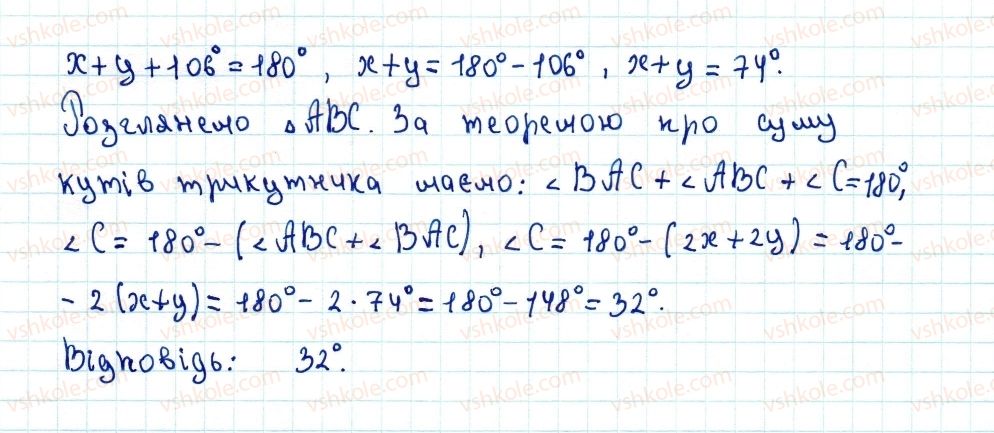 x+y+106°=180°, x+y=180°-106°, x+y=74°.
Розглянемо △ABC. За теоремою про суму
кутів трикутника маємо: ∠BAC+∠ABC+∠C=180°,
∠C= 180°-(∠ABC+∠BAC), ∠C=180°-(2x+2y)=180°-
-2(x+y)=180°-2·74°=180°-148°=32°.
Відповідь: 32°.